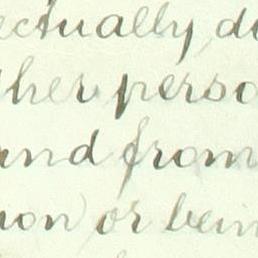 ectually, di
ther perso
and from
non or bein